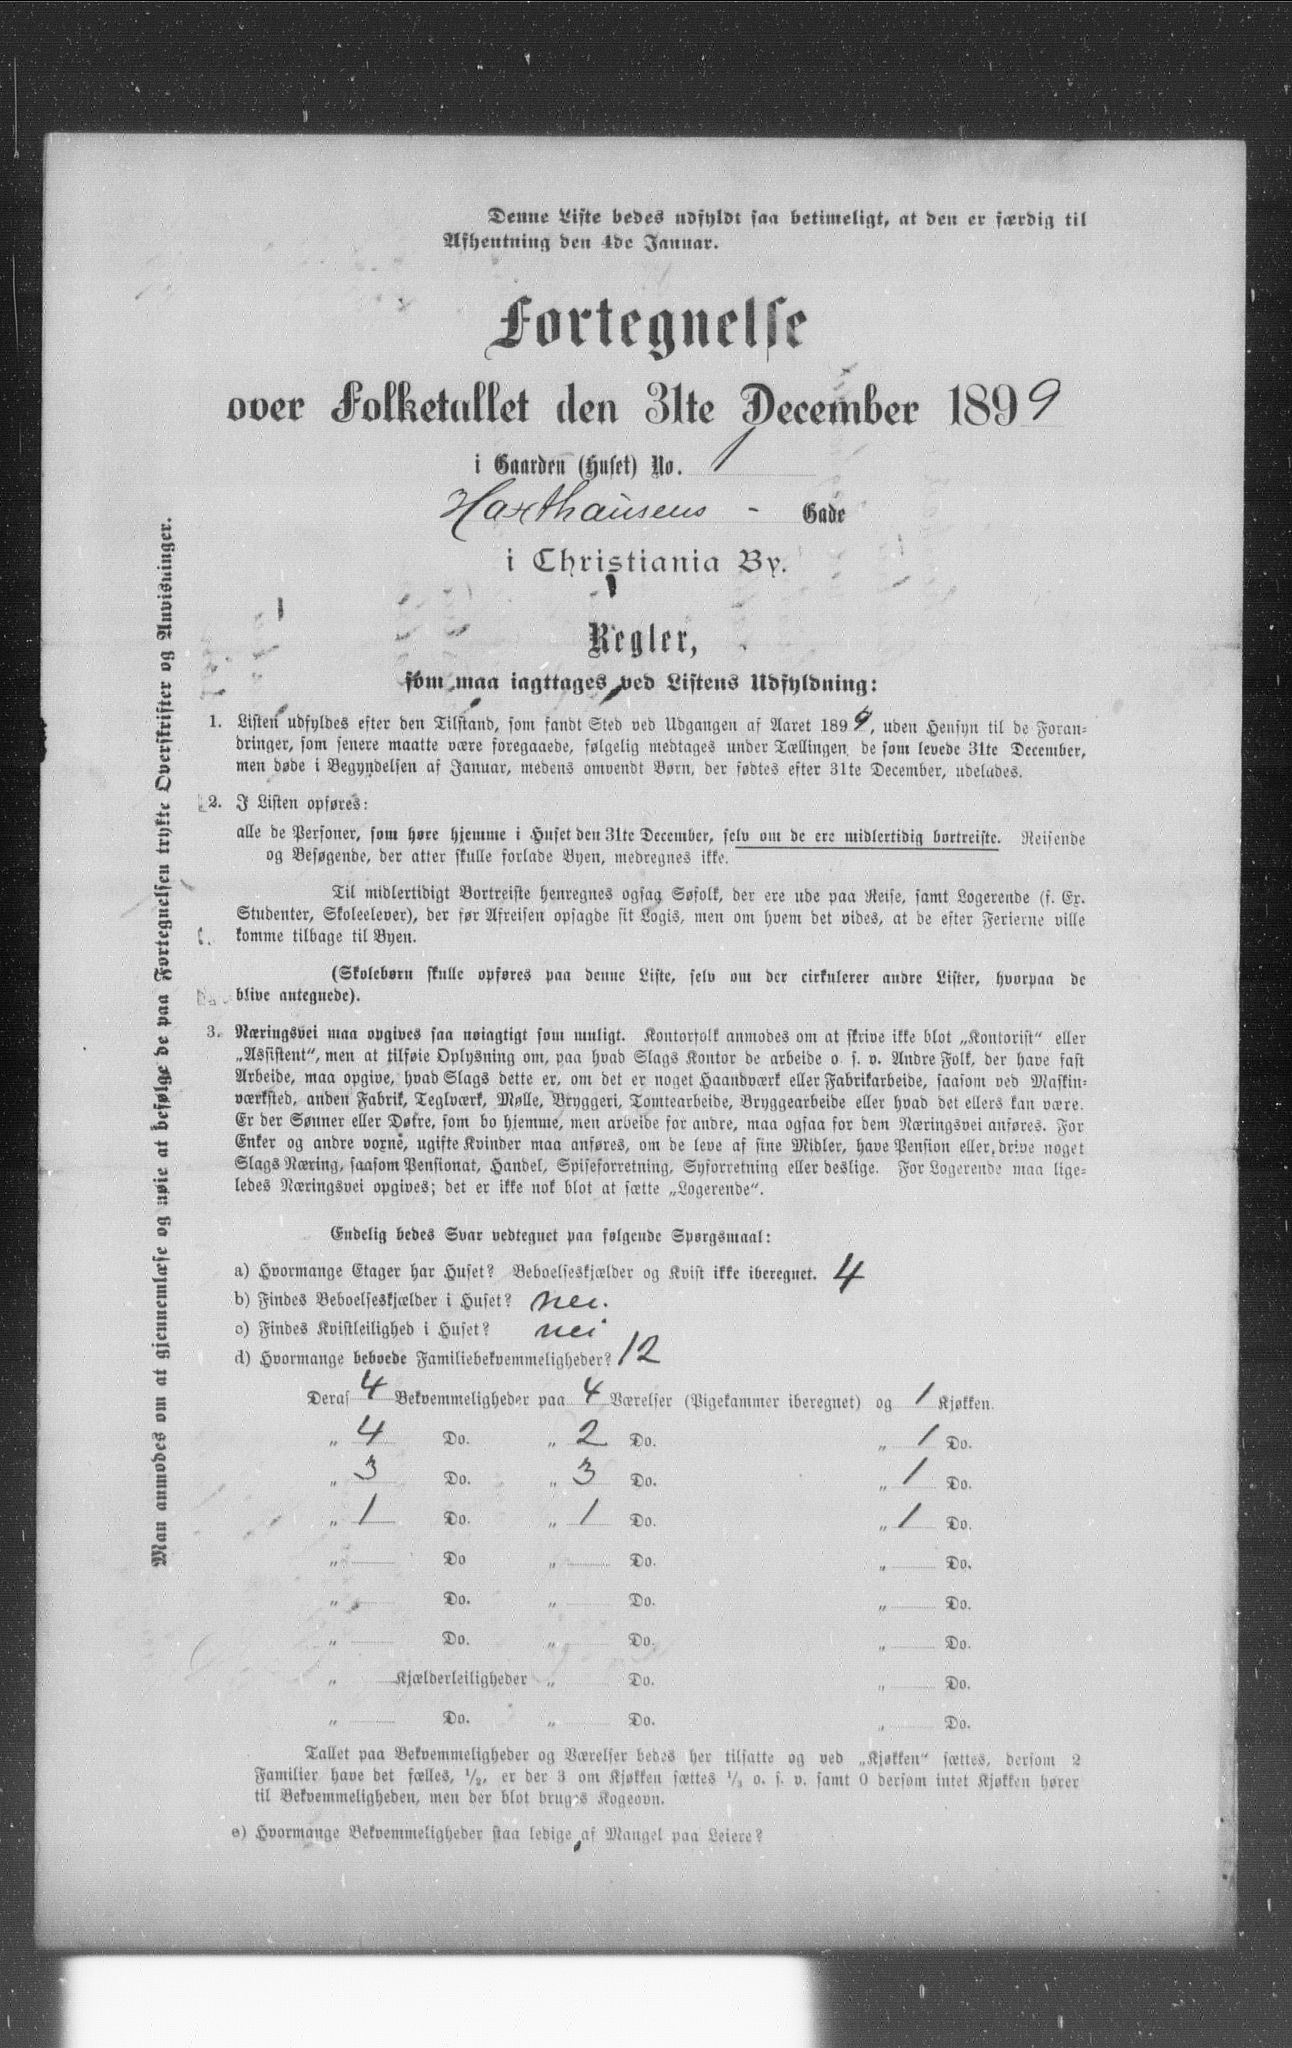 Denne Liste bedes udfyldt saa betimeligt, at den er færdig til
Afhentning den 4de Januar.
Fortegnelse
over Folketallet den 31te December 1899
i Gaarden (Huset) No. 1
Haxthausens - Gade
i Christiania By.
Regler,
som maa iagttages ved Listens Udfyldning:
1. Listen udfyldes efter den Tilstand, som fandt Sted ved Udgangen af Aaret 1899, uden Hensyn til de Foran-
dringer, som senere maatte være foregaaede, følgelig medtages under Tællingen de som levede 31te December,
men døde i Begyndelsen af Januar, medens omvendt Børn, der fødtes efter 31te December, udelades.
2. I Listen opføres:
alle de Personer, som høre hjemme i Huset den 31te December, selv om de ere midlertidig bortreiste. Reisende
og Besøgende, der atter skulle forlade Byen, medregnes ikke.
Til midlertidigt Bortreiste henregnes ogsaa Søfolk, der ere ude paa Reise, samt Logerende (f. Ex.
Studenter, Skoleelever), der før Afreisen opsagde sit Logis, men om hvem det vides, at de efter Ferierne ville
komme tilbage til Byen.
(Skolebørn skulle opføres paa denne Liste, selv om der cirkulerer andre Lister, hvorpaa de
blive antegnede).
3. Næringsvei maa opgives saa nøiagtigt som muligt. Kontorfolk anmodes om at skrive ikke blot „Kontorist“ eller
„Assistent“, men at tilføie Oplysning om, paa hvad Slags Kontor de arbeide o. s. v. Andre Folk, der have fast
Arbeide, maa opgive, hvad Slags dette er, om det er noget Haandværk eller Fabrikarbeide, saasom ved Maskin-
værksted, anden Fabrik, Teglværk, Mølle, Bryggeri, Tomtearbeide, Bryggearbeide eller hvad det ellers kan være.
Er der Sønner eller Døtre, som bo hjemme, men arbeide for andre, maa ogsaa for dem Næringsvei anføres. For
Enker og andre voxne, ugifte Kvinder maa anføres, om de leve af sine Midler, have Pension eller drive noget
Slags Næring, saasom Pensionat, Handel, Spiseforretning, Syforretning eller deslige. For Logerende maa lige-
ledes Næringsvei opgives; det er ikke nok blot at sætte „Logerende“.
Endelig bedes Svar vedtegnet paa følgende Spørgsmaal:
a) Hvormange Etager har Huset? Beboelseskjælder og Kvist ikke iberegnet. 4
b) Findes Beboelseskjælder i Huset? nei.
c) Findes Kvistleilighed i Huset? nei
d) Hvormange beboede Familiebekvemmeligheder? 12
Deraf 4 Bekvemmeligheder paa 4 Værelser (Pigekammer iberegnet) og 1 Kjøkken.
„ 4 Do. „ 2 Do. „ 1 Do.
„ 3 Do. „ 3 Do. „ 1 Do.
„ 1 Do. „ 1 Do. „ 1 Do.
„ Do „ Do. „ Do.
„ Do. „ Do. „ Do.
„ Do. „ Do. „ Do.
„ Kjælderleiligheder „ Do. „ Do.
„ Do. „ Do. „ Do.
Tallet paa Bekvemmeligheder og Værelser bedes her tilsatte og ved „Kjøkken“ sættes, dersom 2
Familier have det fælles, 1/2, er der 3 om Kjøkken sættes 1/3 o. s. v. samt 0 dersom intet Kjøkken hører
til Bekvemmeligheden, men der blot bruges Kogeovn.
e) Hvormange Bekvemmeligheder staa ledige af Mangel paa Leiere?
Man anmodes om at gjennemlæse og nøie at befølge de paa Fortegnelsen trykte Overskrifter og Anvisninger.